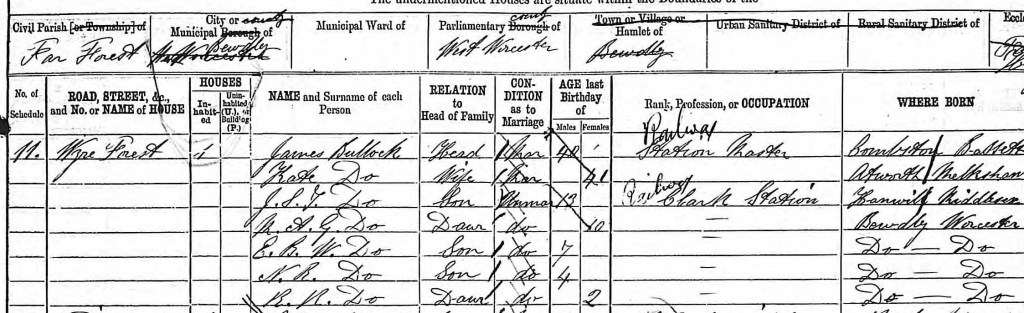 The undermentioned Houses are situate within the Boundaries of the
Civil Parish [or Township] of
Far Forest
City or County
Municipal Borough of
Bewdley
Municipal Ward of
Parliamentary Borough of
County
West Worcester
Town or Village or
Hamlet of
Bewdly
Urban Sanitary District of
Rural Sanitary District of
No. of Schedule
ROAD, STREET, &c., and No. or NAME of HOUSE
HOUSES
In-habit-ed
Unin-habited (U.), or Building (B.)
NAME and Surname of each Person
RELATION to Head of Family
CON-DITION as to Marriage
AGE last Birthday of
Males
Females
Rank, Profession, or OCCUPATION
WHERE BORN
11. Wyre Forest 1 James Bullock Head Mar 40 Railway Station Master
Kate Do Wife Mar 41 Atworth Melksham
J. S. Do Son Unmar 13 Railway Clark Station Middlesex
A. G. Do Daur do 10 — Bewdly Worcester
E. B. W. Do Son do 7 — Do — Do
N. R. Do Son do 4 — Do — Do
R. N. Do Daur do 2 — Do — Do